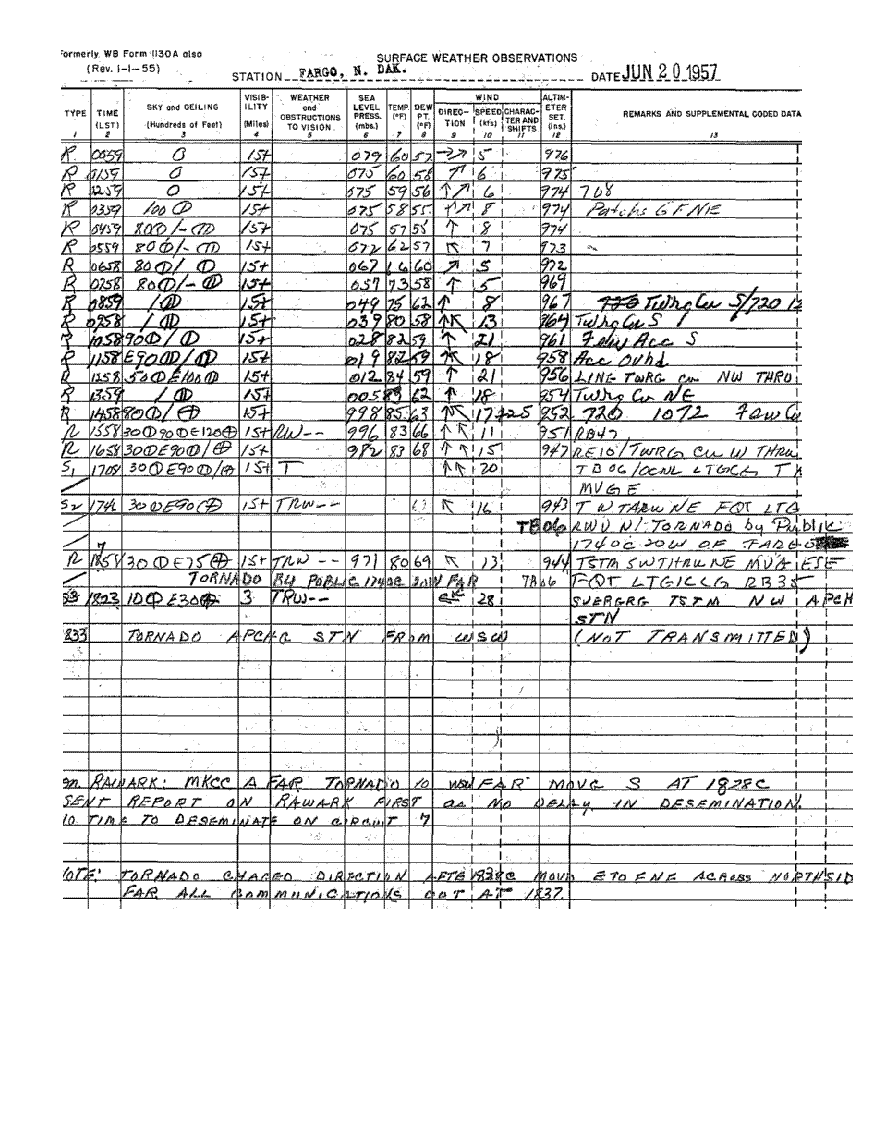 Formerly WB Form 1130A also
(Rev. 1-1-55)
SURFACE WEATHER OBSERVATIONS
STATION FARGO, N. DAK. DATE JUN 20 1957
TYPE TIME (LST) SKY and CEILING (Hundreds of Feet) VISIBILITY (Miles) WEATHER and OBSTRUCTIONS TO VISION SEA LEVEL PRESS. (mbs.) TEMP. (°F) DEW PT. (°F) WIND DIRECTION SPEED (kts) CHARACTER AND SHIFTS ALTIMETER SET. (ins.) REMARKS AND SUPPLEMENTAL CODED DATA
1 2 3 4 5 6 7 8 9 10 11 12 13
R 0059 O 15+ 079 60 57 →↗ 5 976
R 0159 O 15+ 075 60 58 ↗ 6 975
R 1259 O 15+ 075 59 56 ↑↗ 6 974 708
R 0359 100 ⦶ 15+ 075 58 55 ↑↗ 8 974 Patchs GF NE
R 0459 80⦶/-⦷ 15+ 075 57 55 ↑ 8 974
R 0559 80⦶/-⦷ 15+ 072 62 57 ↖ 7 973
R 0658 80⦶/⦶ 15+ 067 60 ↗ 5 972
R 0758 80⦶/-⦷ 15+ 057 73 58 ↑ 5 969
R 0859 /⦷ 15+ 049 75 62 ↑ 8 967 Twrg Cu S/720 12
R 0958 /⦷ 15+ 039 80 58 ↑↖ 13 964 Twrg Cu S
R 1058 90⦶/⦶ 15+ 028 82 59 ↑ 21 961 Few Acc S
R 1158 E90⦷/⦷ 15+ 019 82 59 ↑↖ 18 958 Acc Ovhd
R 1258 50⦶E100⦷ 15+ 012 84 59 ↑ 21 956 LINE TWRG CU NW THRU
R 1359 /⦷ 15+ 005 85 62 ↑ 18 954 Twrg Cu NE
R 1458 80⦶/⊕ 15+ 998 85 63 ↑↖ 17+25 952 720 1072 Few Cu
R 1558 30⦶90⦶E120⊕ 15+ RW-- 996 83 66 ↑↖ 11 951 RB47
R 1658 30⦶E90⦷/⊕ 15+ 982 83 68 ↑↖ 15 947 RE10/TWRG CU W THRU
S1 1708 30⦶E90⦷/⊕ 15+ T ↑↖ 20 TB06/OCNL LTGCG T
MVG E
S2 174 30⦶E90⊕ 15+ TRW-- 63 ↖ 16 943 T W TARW NE FQT LTG
TB06 RWU N/TORNADO by Public
1740C 20W OF FARGO
R 1858 30⦶E75⊕ 15+ TRW-- 971 80 69 ↖ 13 944 TSTM SW THRU NE MVG ESE
TORNADO BY PUBLIC 1740C 20W FAR TB06 FQT LTGICCG RB35
S3 1823 10⦶E30⊕ 3 TRW-- 28 SVERGRG TSTM NW APCH
STN
833 TORNADO APCHG STN FROM WSW (NOT TRANSMITTED)
RAWARK: MKCC A FAR TORNADO 10 WSW FAR MOVG S AT 1828C
SENT REPORT ON RAWARK FIRST as NO DELAY IN DESEMINATION.
10 TIME TO DESEMINATE ON CIRCUIT 7
NOTE: TORNADO CHAGED DIRECTION AFTE 1828C MOVD E TO ENE ACROSS NORTHSID
FAR ALL COMMUNICATIONS OUT AT 1837.